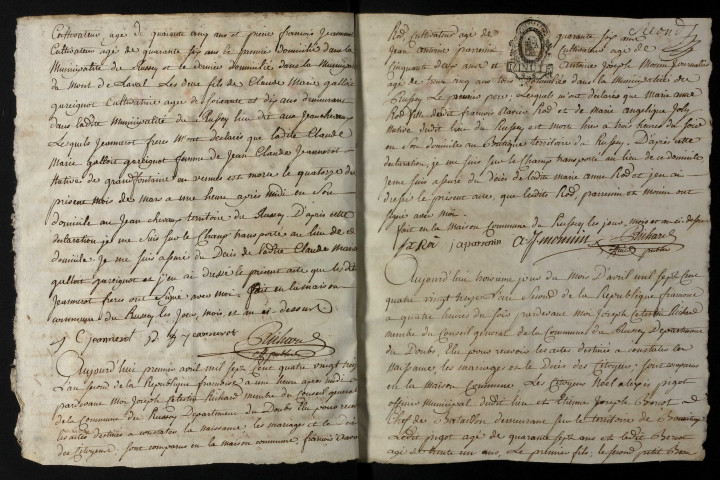 Cultivateur, agé de quarante cinq ans et pierre françois Jeannerot
Cultivateur agé de quarante six ans le premier Domicilié dans la
Municipalité de Russey et le dernier domicilié dans la Municipalité
du Mont de Laval Les deux fils de Claude Marie galliot
guezignot Cultivatrice agée de soixante et dix ans demeurant
dans ladite Municipalité du Russey lieu dit aux Jeanchereux
Lesquels Jeannerot freres M'ont déclarés que ladite Claude
Marie galliot guezignot femme de Jean Claude Jeannerot
Native de grandfontaine en vennes est morte le quatorze du
présent mois de mars a une heure après midi en Son
domicile au Jean chereux territoire du Russey D'après cette
déclaration je me Suis Sur le Champ transporté au lieu de ce
domicile Je me Suis assuré du Décés de ladite Claude Marie
galliot guezignot et j'en ai Dressé le présent acte que les dits
Jeannerot freres ont Signé avec moi. fait en la maison
commune du Russey les Jour, mois, et an ci dessus
C jeannerot P f jeannerot
Richard
off. public
Aujourd'hui premier avril mil Sept Cent quatre vingt treize
L'an Second de la République française a une heure après midi
pardevant Moi Joseph Celestin Richard Membre du Conseil general
de la Commune du Russey Département du Doubs Elu pour recevoir
les actes destinés a constater la naissance, les mariages et le Décés
des Citoyens Sont comparus en la maison commune françois Xavier
Second
Rod, Cultivateur agé de quarante Six ans
Jean antoine parrenin Cultivateur agé de
Cinquante deux ans et Antoine Joseph Monnin Journalier
agé de trente cinq ans tous domiciliés dans la Municipalité de
Russey Le premier pere; Lesquels m'ont déclaré que Marie anne
Rod fille dudit françois Xavier Rod et de marie angelique Joly
Native dudit lieu du Russey est morte hier a trois heures du Soir
en Son domicile au territoire du Russey. D'après cette
déclaration, je me Suis Sur le Champ transporté au lieu de ce domicile
je me Suis assuré du décés de ladite marie anne Rod et j'en ai
dressé le présent acte, que lesdits Rod, parrenin et Monin ont
Signé avec moi.
fait en la Maison Commune du Russey les jour, mois et an ci-dessus
f x Rod j a parrenin a J monnin
Richard
officier public
Aujourd'hui troisieme jour du Mois D'avril mil Sept Cent
quatre vingt treize l'an Second de la République française
a quatre heures du Soir pardevant Moi Joseph Celestin Richard
membre du Conseil general de la Commune du Russey Département
du Doubs Elu pour recevoir les actes destinés a constater la
naissance, les mariages et le Décés des Citoyens, Sont comparus
en la Maison Commune Les Citoyens Noel alexis pigot
officier Municipal dudit lieu et Etienne Joseph Bonnot
Chef de Bataillon demeurant Sur le territoire de
Ledit pigot agé de quarante Sept ans et ledit Bonnot
agé de trente un ans, Le premier fils, le second petit Beau